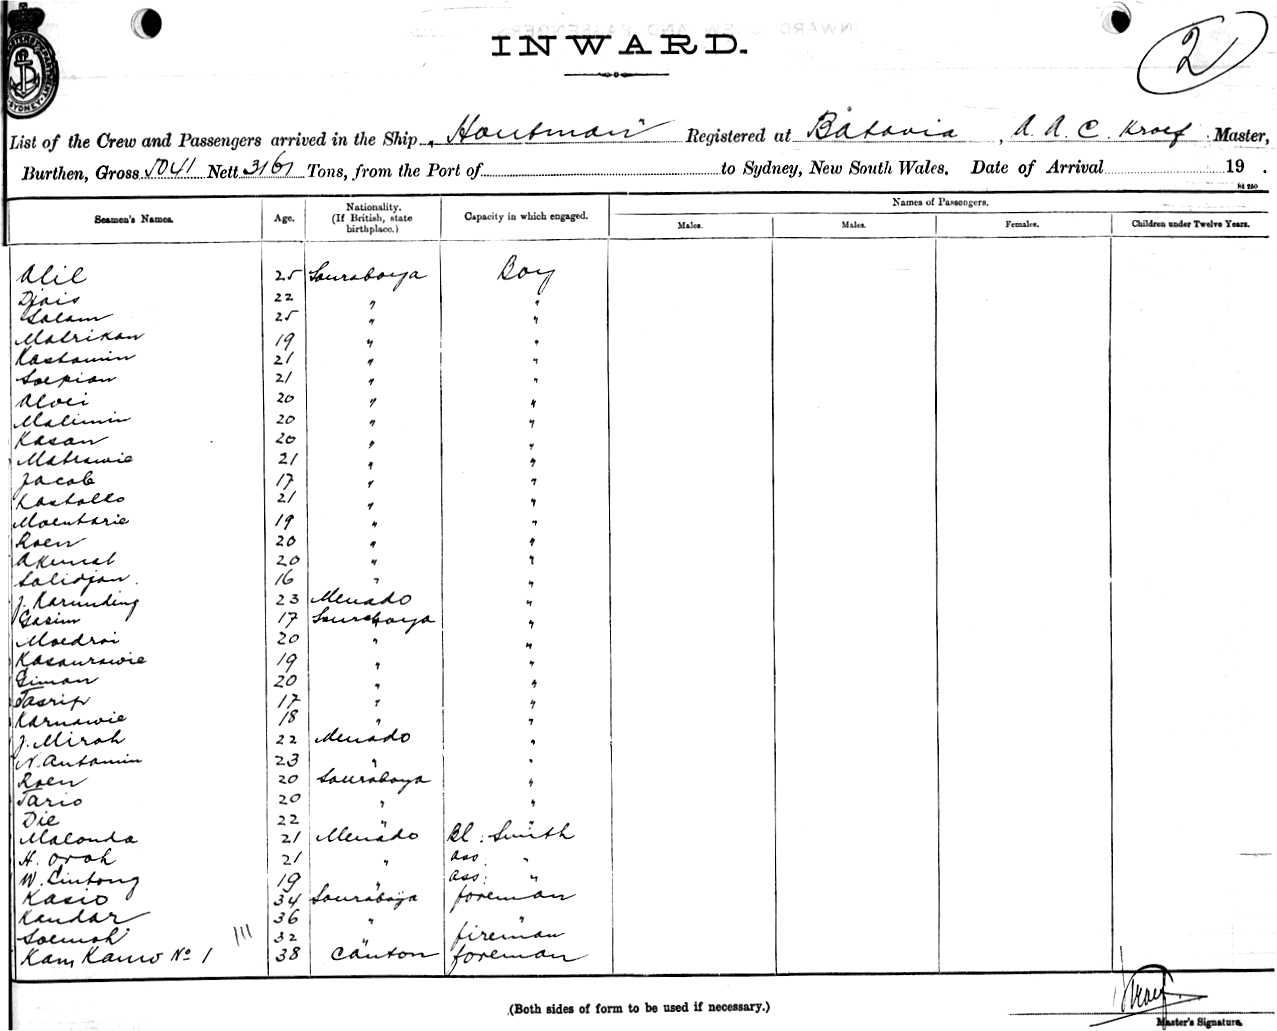 INWARD.
2
List of the Crew and Passengers arrived in the Ship "Houtman" Registered at Batavia, A. A. C. Kroef Master,
Burthen, Gross 5041 Nett 3161 Tons, from the Port of to Sydney, New South Wales. Date of Arrival 19 .
Seamen's Names. Age. Nationality. (If British, state birthplace.) Capacity in which engaged. Names of Passengers.
Males. Males. Females. Children under Twelve Years.
Alil 25 Sourabaya Boy
Djais 22 " "
Salam 25 " "
Matrikan 19 " "
Kastamin 21 " "
Soepian 21 " "
Alwi 20 " "
Matimin 20 " "
Kasan 20 " "
Matrawie 21 " "
Jacob 17 " "
21 " "
Moentarie 19 " "
Roen 20 " "
20 " "
Salidjan 16 " "
J. Karunding 23 Menado "
Gasim 17 Sourabaya "
Moedrai 20 " "
Kasanrawie 19 " "
Giman 20 " "
Tasrip 17 " "
Karnawie 18 " "
J. Mirah 22 Menado "
N. Antamin 23 " "
Roen 20 Sourabaya "
Tario 20 " "
Die 22 " "
Malonda 21 Menado Bl. Smith
H. Oroh 21 " ass. "
W. Lintong 19 " ass. "
Kasio 34 Sourabaya foreman
Kandar 36 " "
Soemoh 32 " fireman
Kam Kamo No 1 38 Canton foreman
(Both sides of form to be used if necessary.)
Kroef.
Master's Signature.